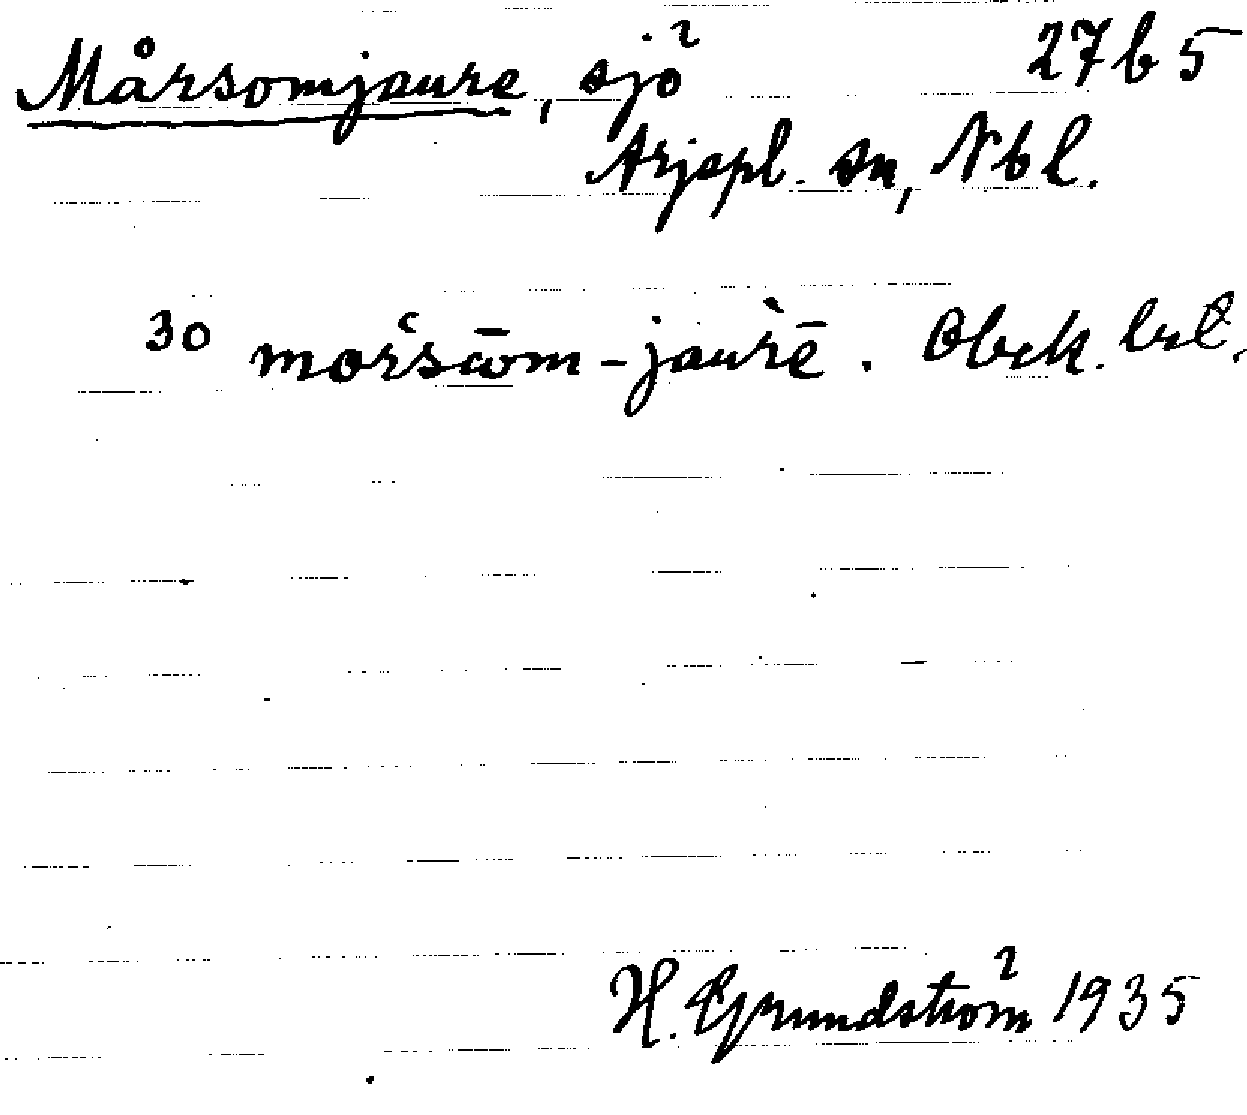 Mårsomjaure, sjö 27b5
Arjepl. sn, Nbl.
30 morsōm-jaurē. Obek.
H. Grundström 1935